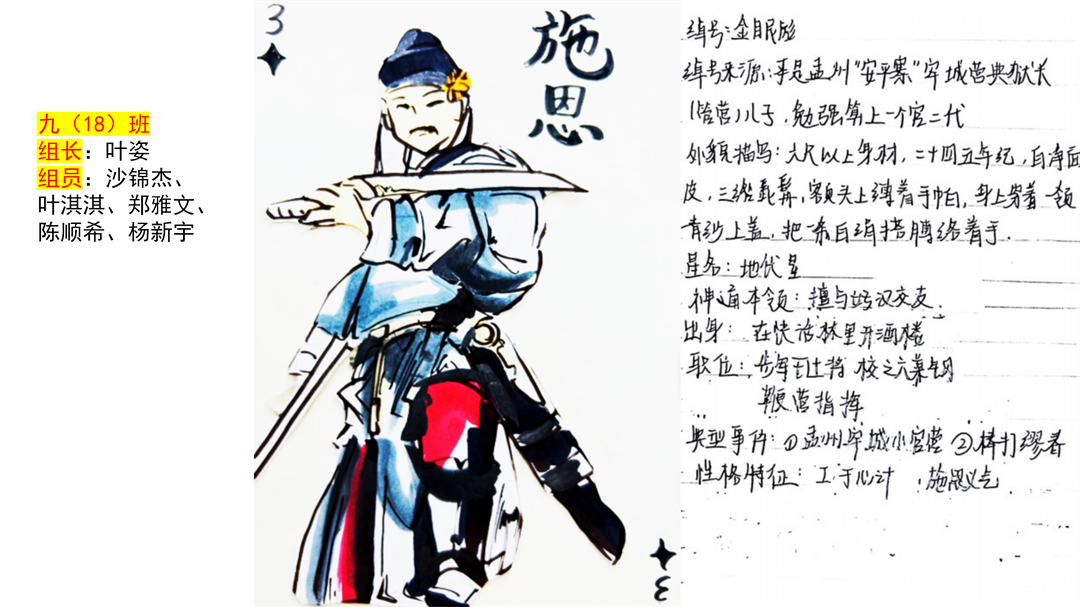 九（18）班
组长：叶姿
组员：沙锦杰、
叶淇淇、郑雅文、
陈顺希、杨新宇
3
施恩
3
绰号：金眼彪
绰号来源：于是孟州“安平寨”牢城营典狱长
(管营)儿子，勉强算上一个官二代
外貌描写：六尺以上身材，二十四五年纪，白净面
皮，三绺髭髯，额头上缚着手帕，身上穿着一领
青纱上盖，把一条白绢搭膊络着手.
星名：地伏星
神通本领：擅与好汉交友.
出身：在快活林里开酒楼
职位：步军
指挥
典型事件：①孟州牢城小官营 ②棒打缪春
性格特征：工于心计，施恩义气